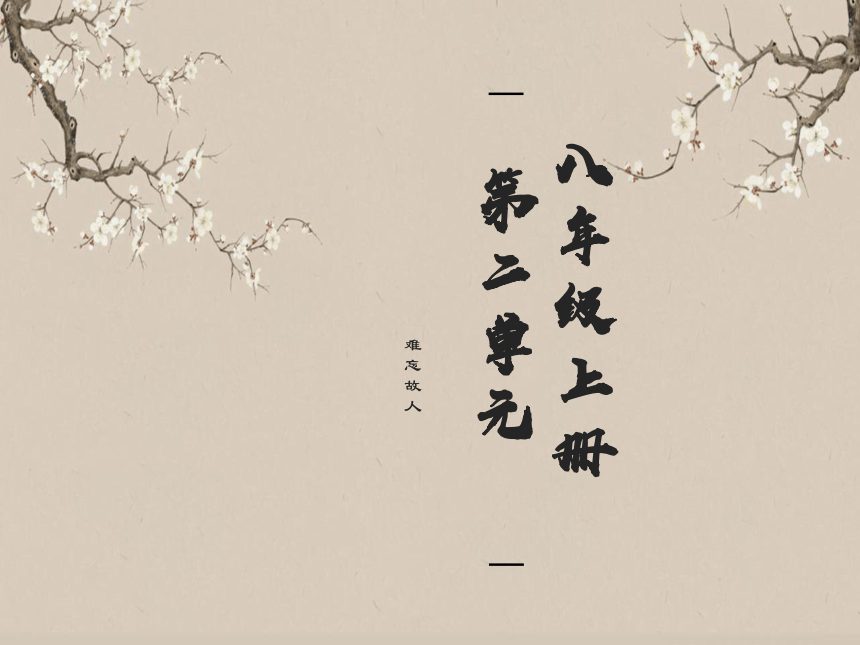 八年级上册
第二單元
难忘故人